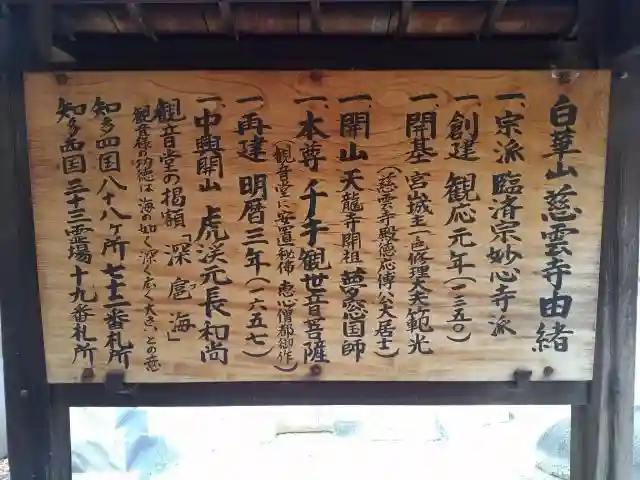 白華山 慈雲寺由緒
一、宗派 臨済宗妙心寺派
一、創建 観応元年(一三五〇)
一、開基 宮城主一色修理大夫範光
(慈雲寺殿徳応傳公大居士)
一、開山 天龍寺開祖 夢窓国師
一、本尊 千手観世音菩薩
(観音堂に安置秘佛 恵心僧都御作)
一、再建 明暦三年(一六五七)
一、中興開山 虎渓元長和尚
観音堂の掲額「深廣海」
観音様の功徳は海の如く深く広く大きい、との意
知多四国八十八ヶ所 七十二番札所
知多西国三十三霊場 十九番札所